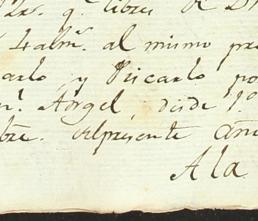 libres
4 alm.s al mismo pre
arlo, y Picarlo po
n.l Angel, desde 1.o
bre. del presente año
A la